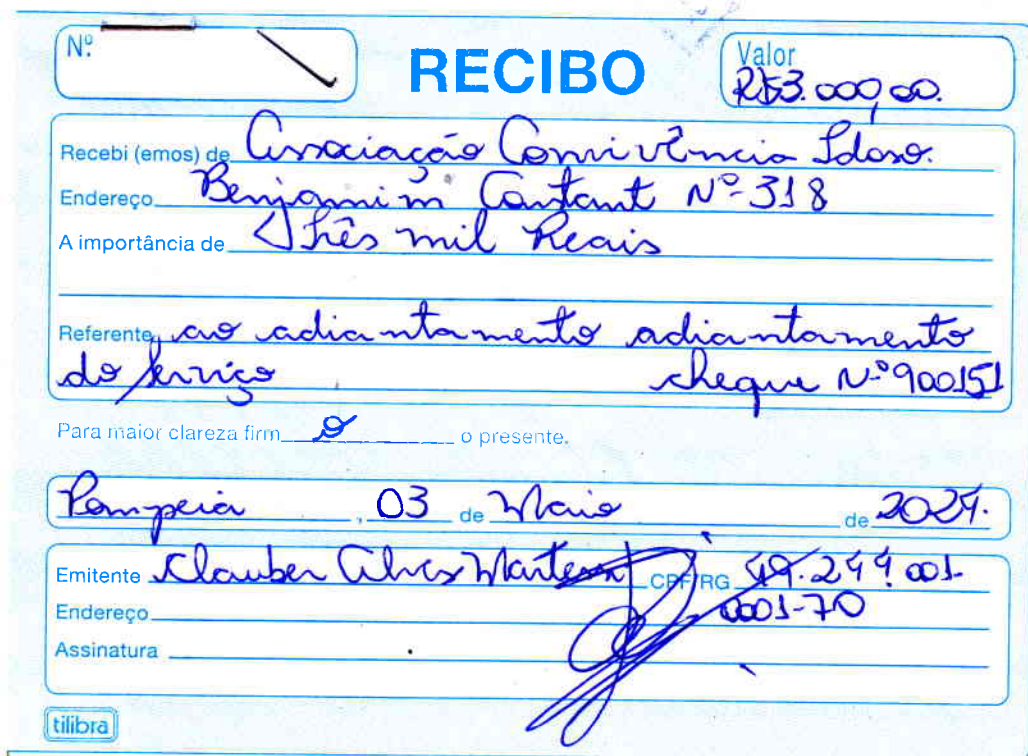 Nº
RECIBO
Valor
R$3.000,00.
Recebi (emos) de Associação Convivência Idoso.
Endereço Benjamim Constant Nº 318
A importância de Três mil Reais
Referente ao adiantamento adiantamento
do serviço cheque Nº 900151
Para maior clareza firm o o presente.
Pompeia , 03 de Maio de 2024.
Emitente Clauber Alves Martens CPF/RG 49.244.001-
0001-70
Endereço
Assinatura
tilibra